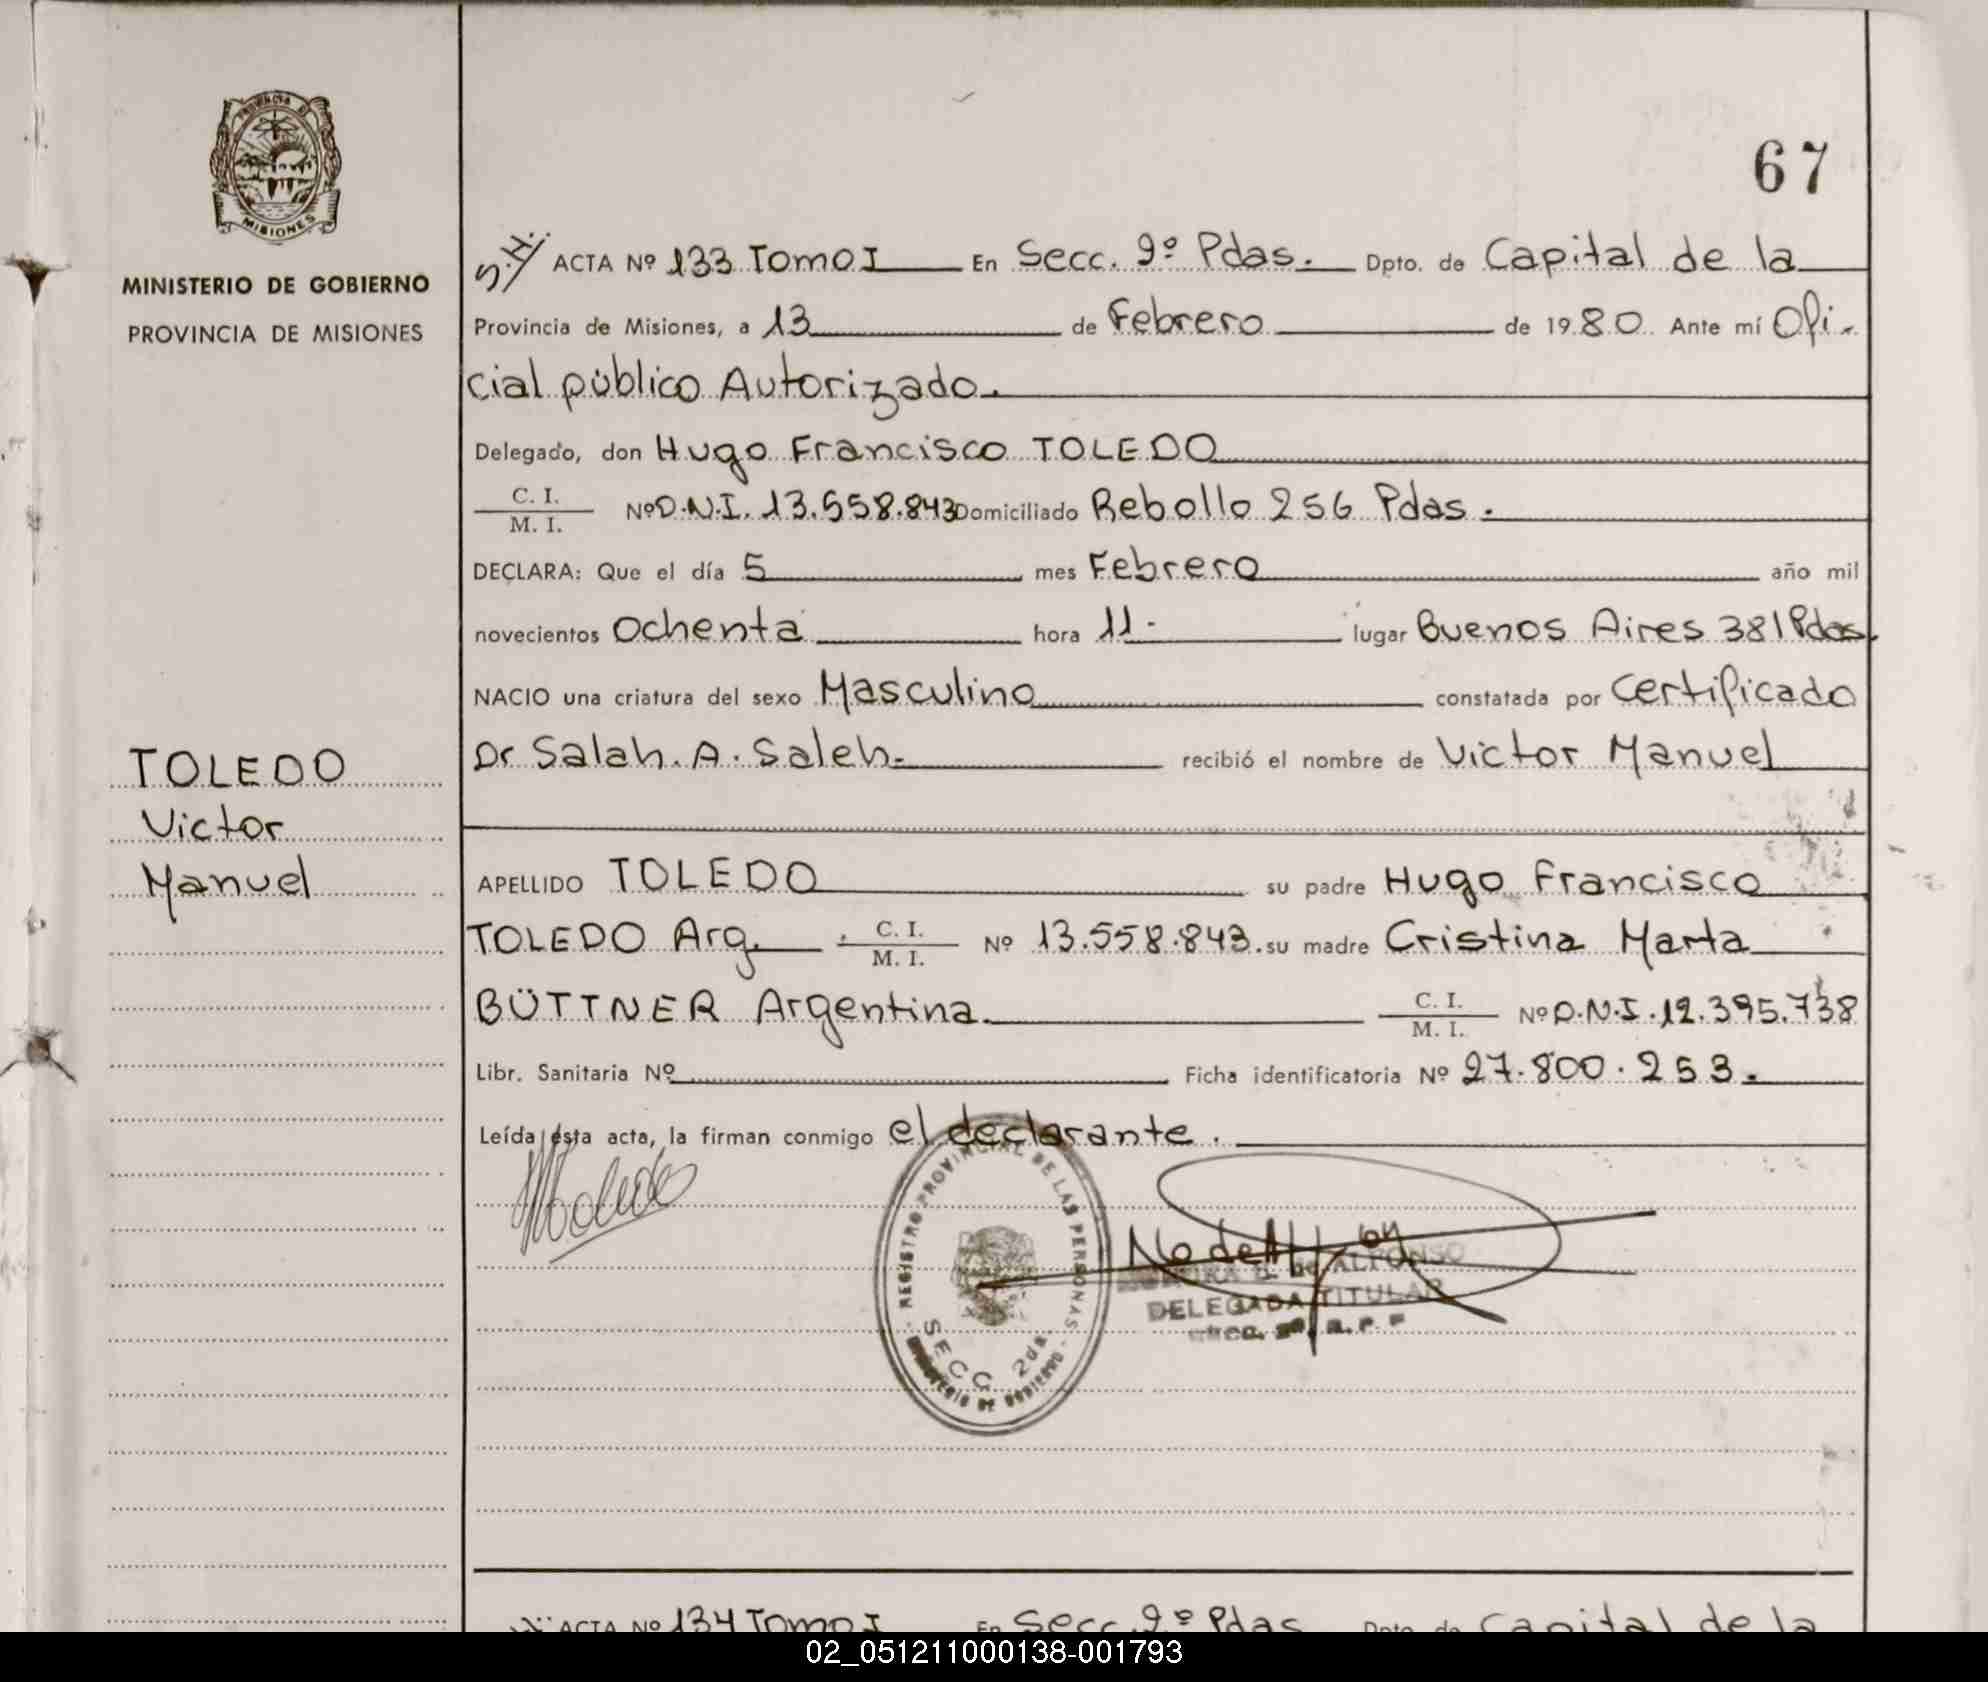 67
MINISTERIO DE GOBIERNO
PROVINCIA DE MISIONES
PROVINCIA DE
MISIONES
S.H. ACTA Nº 133 Tomo I En Secc. 2º Pdas. Dpto. de Capital de la
Provincia de Misiones, a 13 de Febrero de 1980. Ante mí Ofi-
cial público Autorizado.
Delegado, don Hugo Francisco TOLEDO
C. I.
M. I. Nº D.N.I. 13.558.843 Domiciliado Rebollo 256 Pdas.
DECLARA: Que el día 5 mes Febrero año mil
novecientos ochenta hora 11- lugar Buenos Aires 381 Pdas.
NACIO una criatura del sexo Masculino constatada por Certificado
Dr Salah. A. Saleh.- recibió el nombre de Victor Manuel
TOLEDO
Victor
Manuel
APELLIDO TOLEDO su padre Hugo Francisco
TOLEDO Arg. C. I. M. I. Nº 13.558.843. su madre Cristina Marta
BÜTTNER Argentina. C. I. M. I. Nº D.N.I. 12.395.738
Libr. Sanitaria Nº Ficha identificatoria Nº 27.800.253.
Leída ésta acta, la firman conmigo el declarante.
REGISTRO PROVINCIAL DE LAS PERSONAS
SECC 2da
MINISTERIO DE GOBIERNO
de ALFONSO
DELEGADA TITULAR
ACTA Nº 134 Tomo I En Secc. 2º Pdas Dpto. de Capital de la
02_051211000138-001793